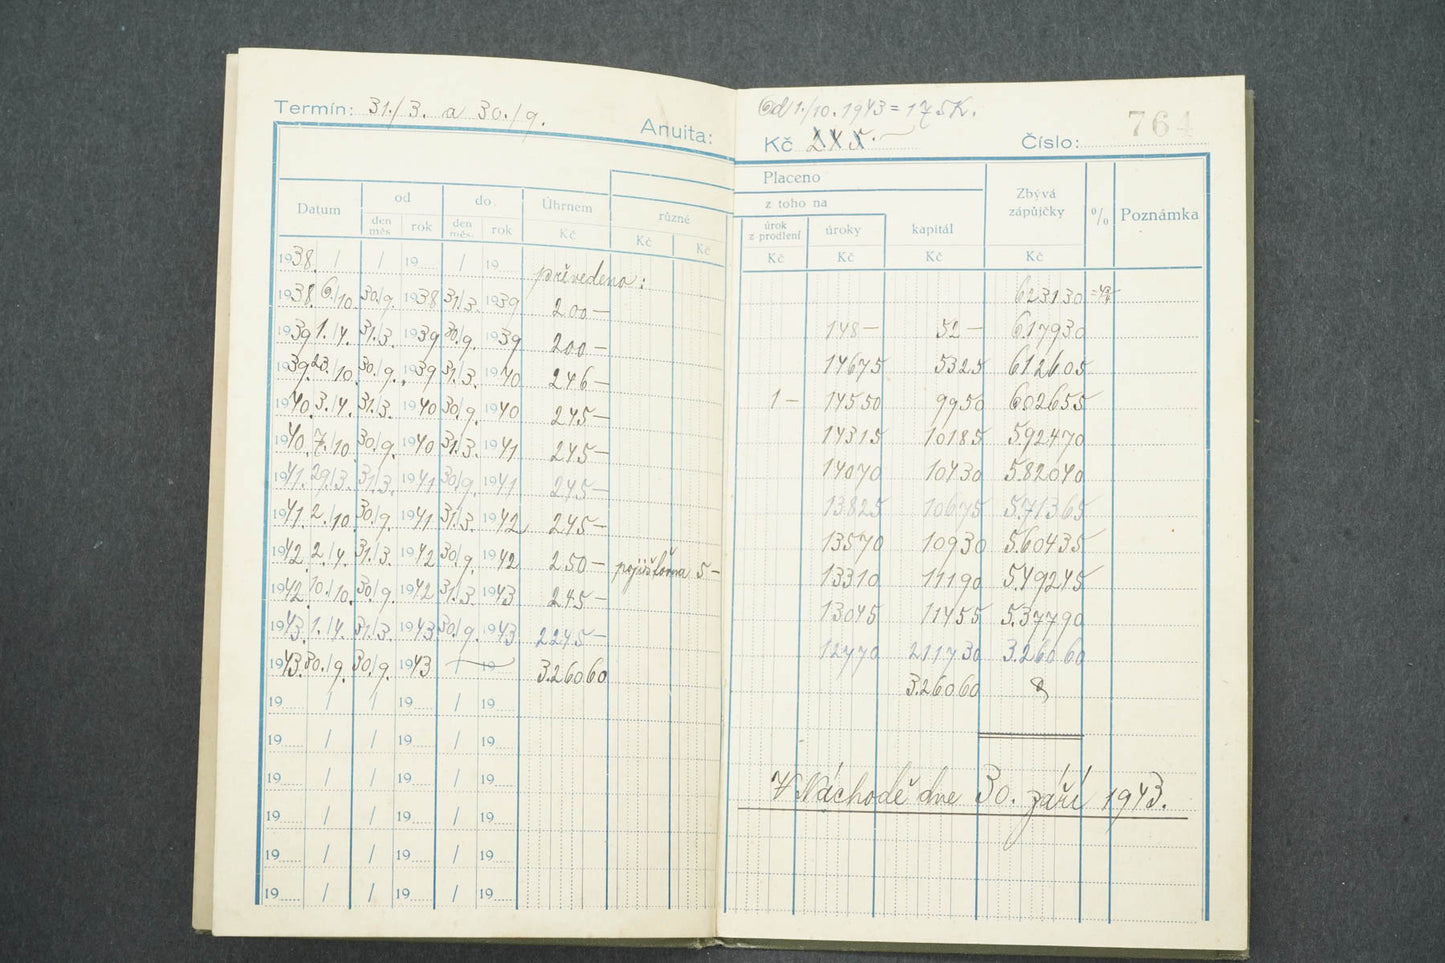 Termín: 31./3. a 30./9.
Anuita:
Od 1./10. 1943 = 175 K.
Kč 245.—
Číslo: 764
Datum od do Úhrnem různé
den měs. rok den měs. rok Kč Kč Kč
Placeno
z toho na
úrok z prodlení úroky kapitál Zbývá zápůjčky % Poznámka
Kč Kč Kč Kč
1938. / / 19 / 19 převedeno: 623130
1938. 6./10. 30./9. 1938 31./3. 1939 200— 148— 52— 617930
1939 1./4. 31./3. 1939 30./9. 1939 200— 14675 5325 612605
1939. 23./10. 30./9. 1939 31./3. 1940 246— 1— 14550 9950 602655
1940. 3./4. 31./3. 1940 30./9. 1940 245— 14315 10185 592470
1940. 7./10. 30./9. 1940 31./3. 1941 245— 14070 10430 582040
1941. 29./3. 31./3. 1941 30./9. 1941 245— 13825 10675 5.71365
1941. 2./10. 30./9. 1941 31./3. 1942 245— 13570 10930 5.60435
1942. 2./4. 31./3. 1942 30./9. 1942 250— 5— 13310 11190 5.49245
1942. 10./10. 30./9. 1942 31./3. 1943 245— 13045 11455 5.37790
1943. 1./4. 31./3. 1943 30./9. 1943 2245— 12770 211730 3.26060
1943. 30./9. 30./9. 1943 19 3.26060 3.26060
19 / / 19 / 19
19 / / 19 / 19
19 / / 19 / 19
V Náchodě dne 30. září 1943.
19 / / 19 / 19
19 / / 19 / 19
19 / / 19 / 19